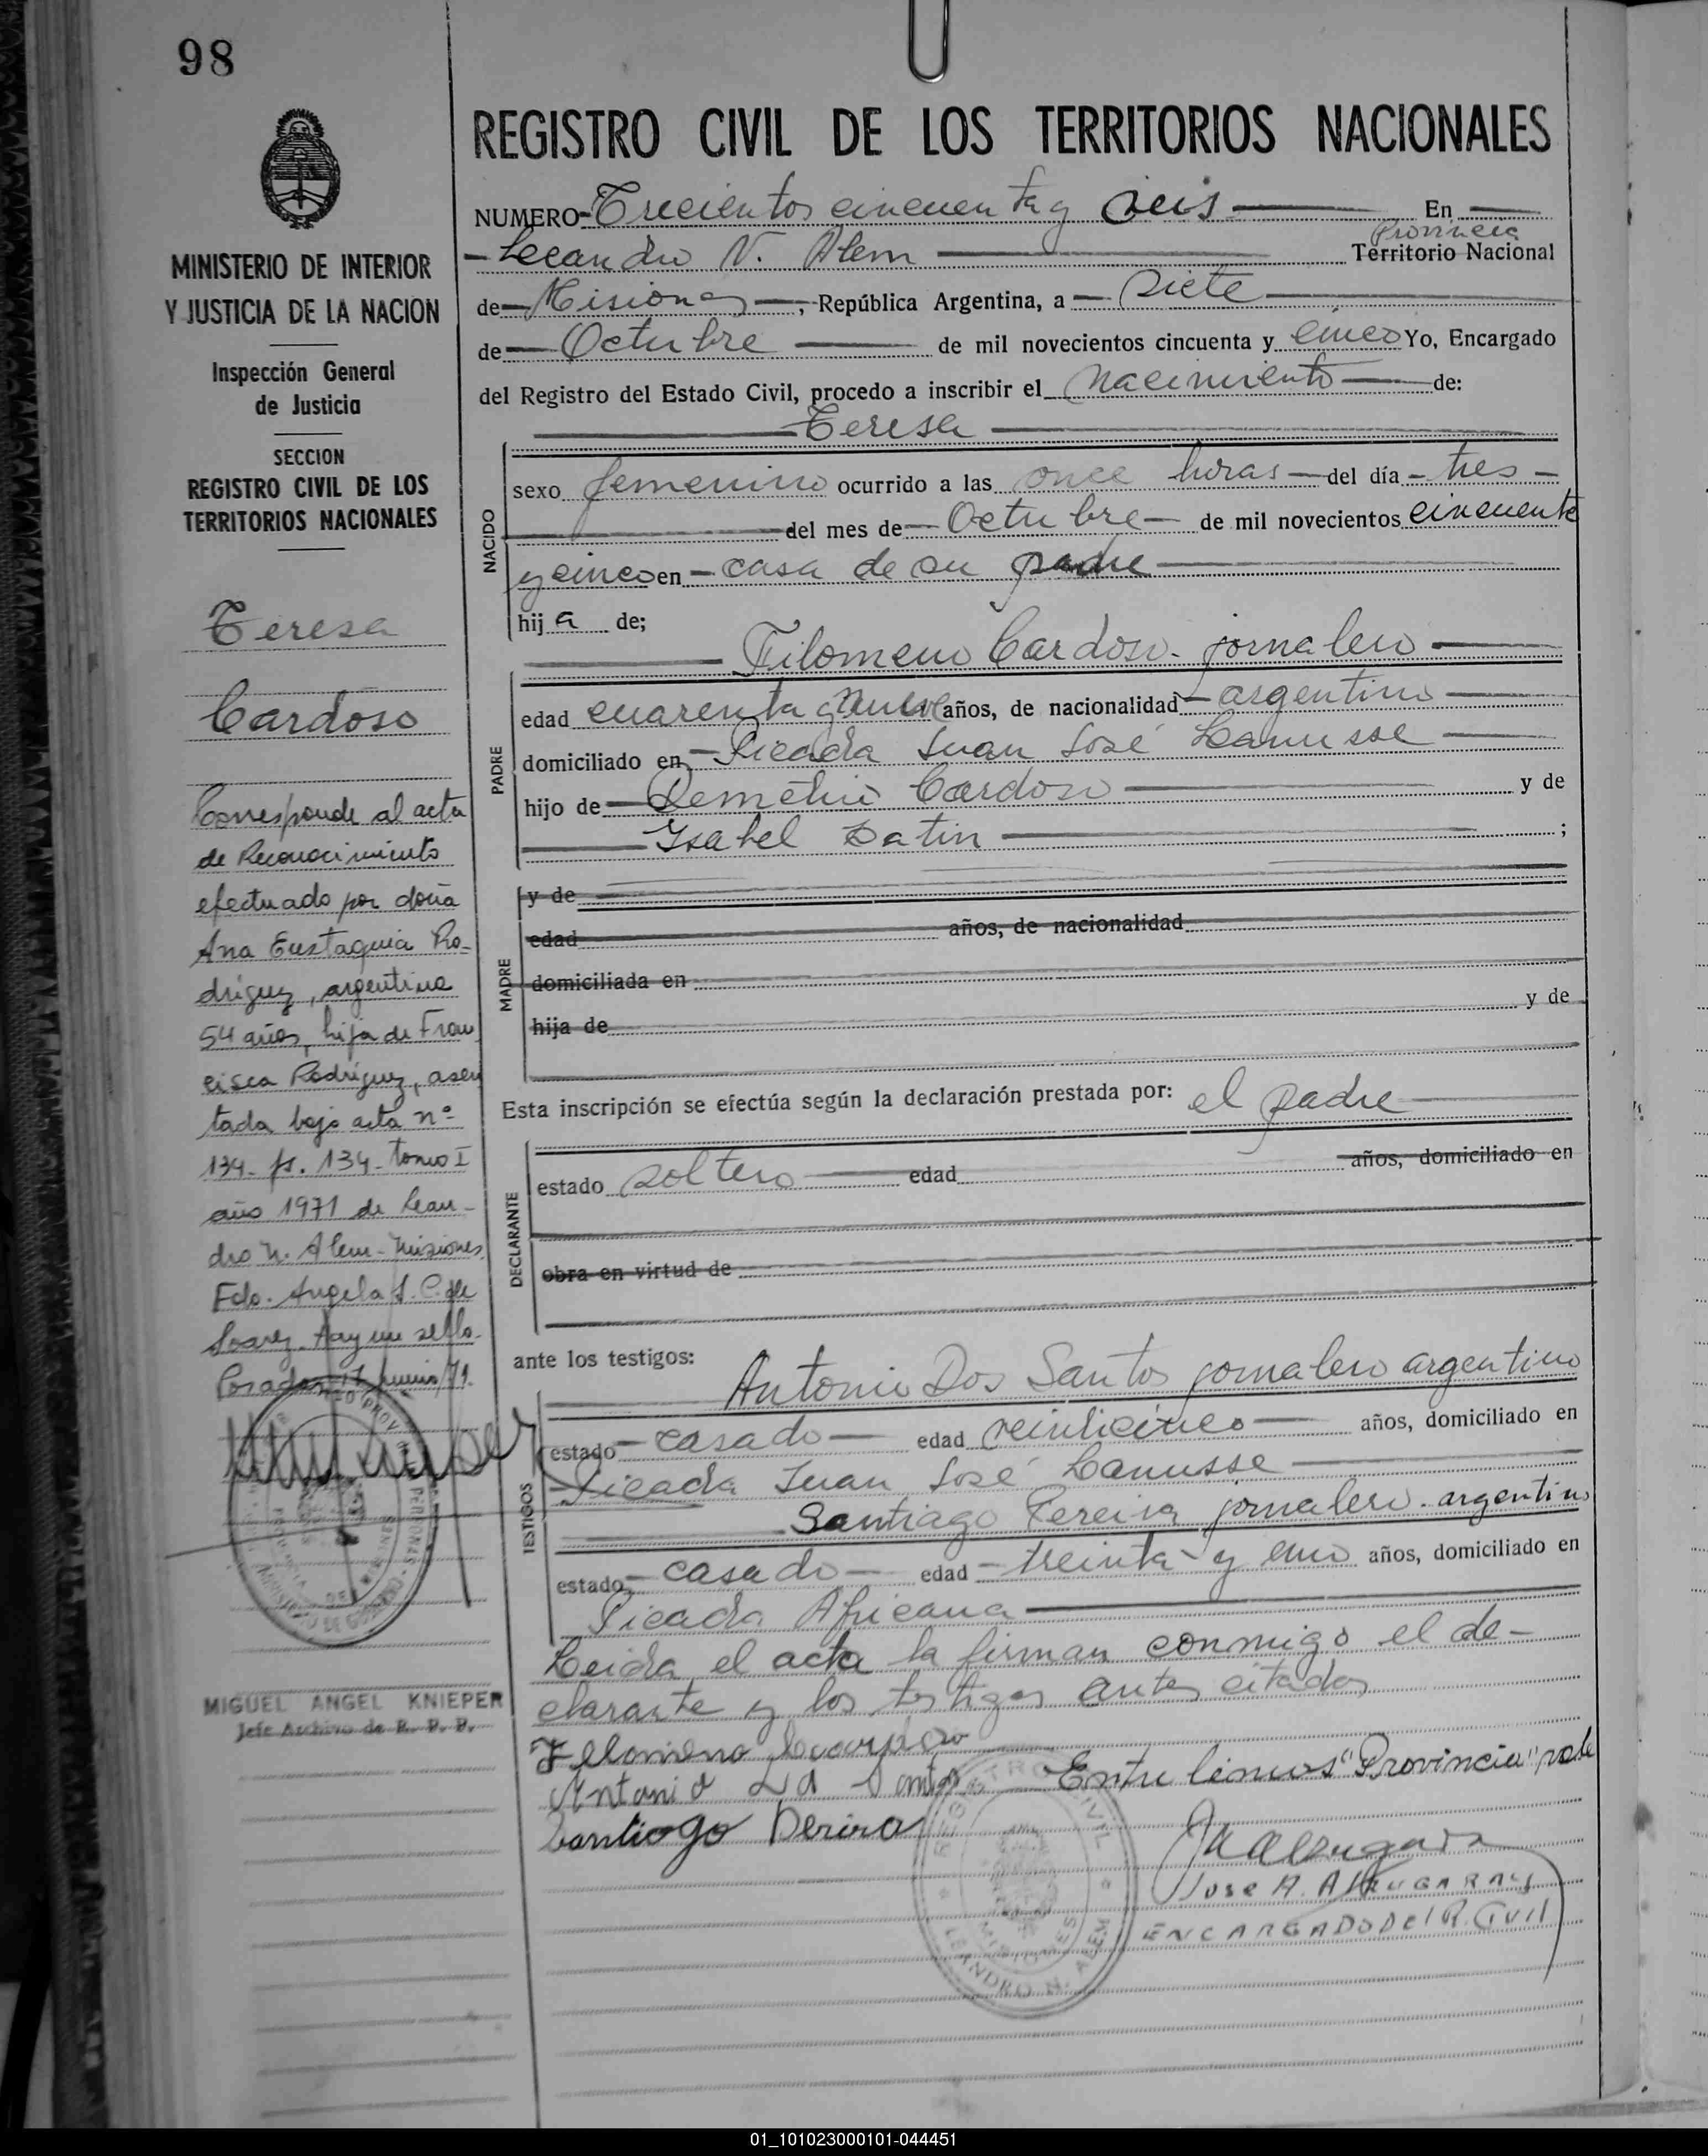 98
MINISTERIO DE INTERIOR
Y JUSTICIA DE LA NACION
Inspección General
de Justicia
SECCION
REGISTRO CIVIL DE LOS
TERRITORIOS NACIONALES
Teresa
Cardoso
Corresponde al acta
de Reconocimiento
efectuado por doña
Ana Eustaquia Ro-
driguez, argentina
54 años, hija de Fran
cisca Rodriguez, asen
tada bajo acta nº
134- fs. 134- tomo I
año 1971 de Lean-
dro N. Alem- Misiones
Fdo. Angela S. C. de
Soarez. Hay un sello.
Posadas, 17 junio/71.
MIGUEL ANGEL KNIEPER
Jefe Archivo de R. P. P.
REGISTRO CIVIL DE LOS TERRITORIOS NACIONALES
NUMERO Trecientos cincuenta y seis En
Leeandro N. Alem Provincia Territorio Nacional
de Misiones, República Argentina, a siete
de Octubre de mil novecientos cincuenta y cinco Yo, Encargado
del Registro del Estado Civil, procedo a inscribir el Nacimiento de:
Teresa
NACIDO
sexo femenino ocurrido a las once horas del día tres
del mes de Octubre de mil novecientos cincuenta
y cinco en casa de su padre
hij a de;
Filomeno Cardoso- jornalero
PADRE
edad cuarenta y nueve años, de nacionalidad argentino
domiciliado en Picada Juan José Lanusse
hijo de Demetrio Cardoso y de
Isabel Batin ;
MADRE
y de
edad años, de nacionalidad
domiciliada en
hija de y de
Esta inscripción se efectúa según la declaración prestada por: el padre
DECLARANTE
estado soltero edad años, domiciliado en
obra en virtud de
ante los testigos:
TESTIGOS
Antonio Dos Santos jornalero argentino
estado casado edad veinticinco años, domiciliado en
Picada Juan José Lanusse
Santiago Pereira jornalero. argentino
estado casado edad treinta y uno años, domiciliado en
Picada Africana
Leida el acta la firman conmigo el de-
clarante y los testigos antes citados
Filomeno
Antonio
Santiago Perira
Entre lineas "Provincia" vale
REGISTRO CIVIL
MISIONES
LEANDRO N. ALEM
Jose A. Alzugaray
ENCARGADO DEl R. Civil
01_101023000101-044451